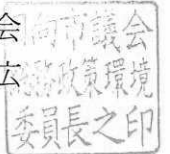 会
向市議会
務政策環境
委員長之印